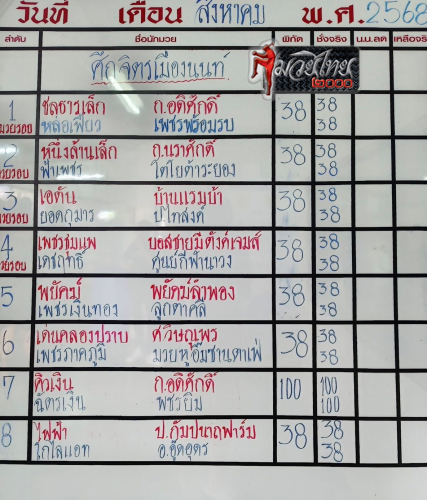 วันที่ เดือน สิงหาคม พ.ศ. 2568
ลำดับ ชื่อนักมวย พิกัด ชั่งจริง น.น.ลด เหลือจริง
ศึกจิตรเมืองนนท์
มวยไทย
2000
1 ชลธารเล็ก ก.อดิศักดิ์ 38 38
มวยรอบ หล่อเฟี้ยว เพชรพร้อมรบ 38
2 หนึ่งล้านเล็ก ก.นราศักดิ์ 38 38
มวยรอบ ฟ้าเพชร โตโยต้าระยอง 38
3 เอตัน บ้านแรมบ้า 38 38
มวยรอบ ยอดกุมาร ป.ไทสงค์ 38
4 เพชรชุมแพ บอสชายมีตังค์เจมส์ 38 38
มวยรอบ เดชฤทธิ์ ศูนย์กีฬานาวง 38
5 พยัคฆ์ พยัคฆ์ลำพอง 38 38
เพชรเงินทอง ลูกตาคลี 38
6 เด่นคลองปราบ ศวิษณุพร 38 38
เพชรภาคภูมิ มวยหูอื้มซานตาเฟ่ 38
7 คิวเงิน ก.อดิศักดิ์ 100 100
ฉัตรเงิน พชรยิม 100
8 ไฟฟ้า ป.กัมปนาถฟาร์ม 38 38
โกไลแอท อ.อู๊ดอุดร 38